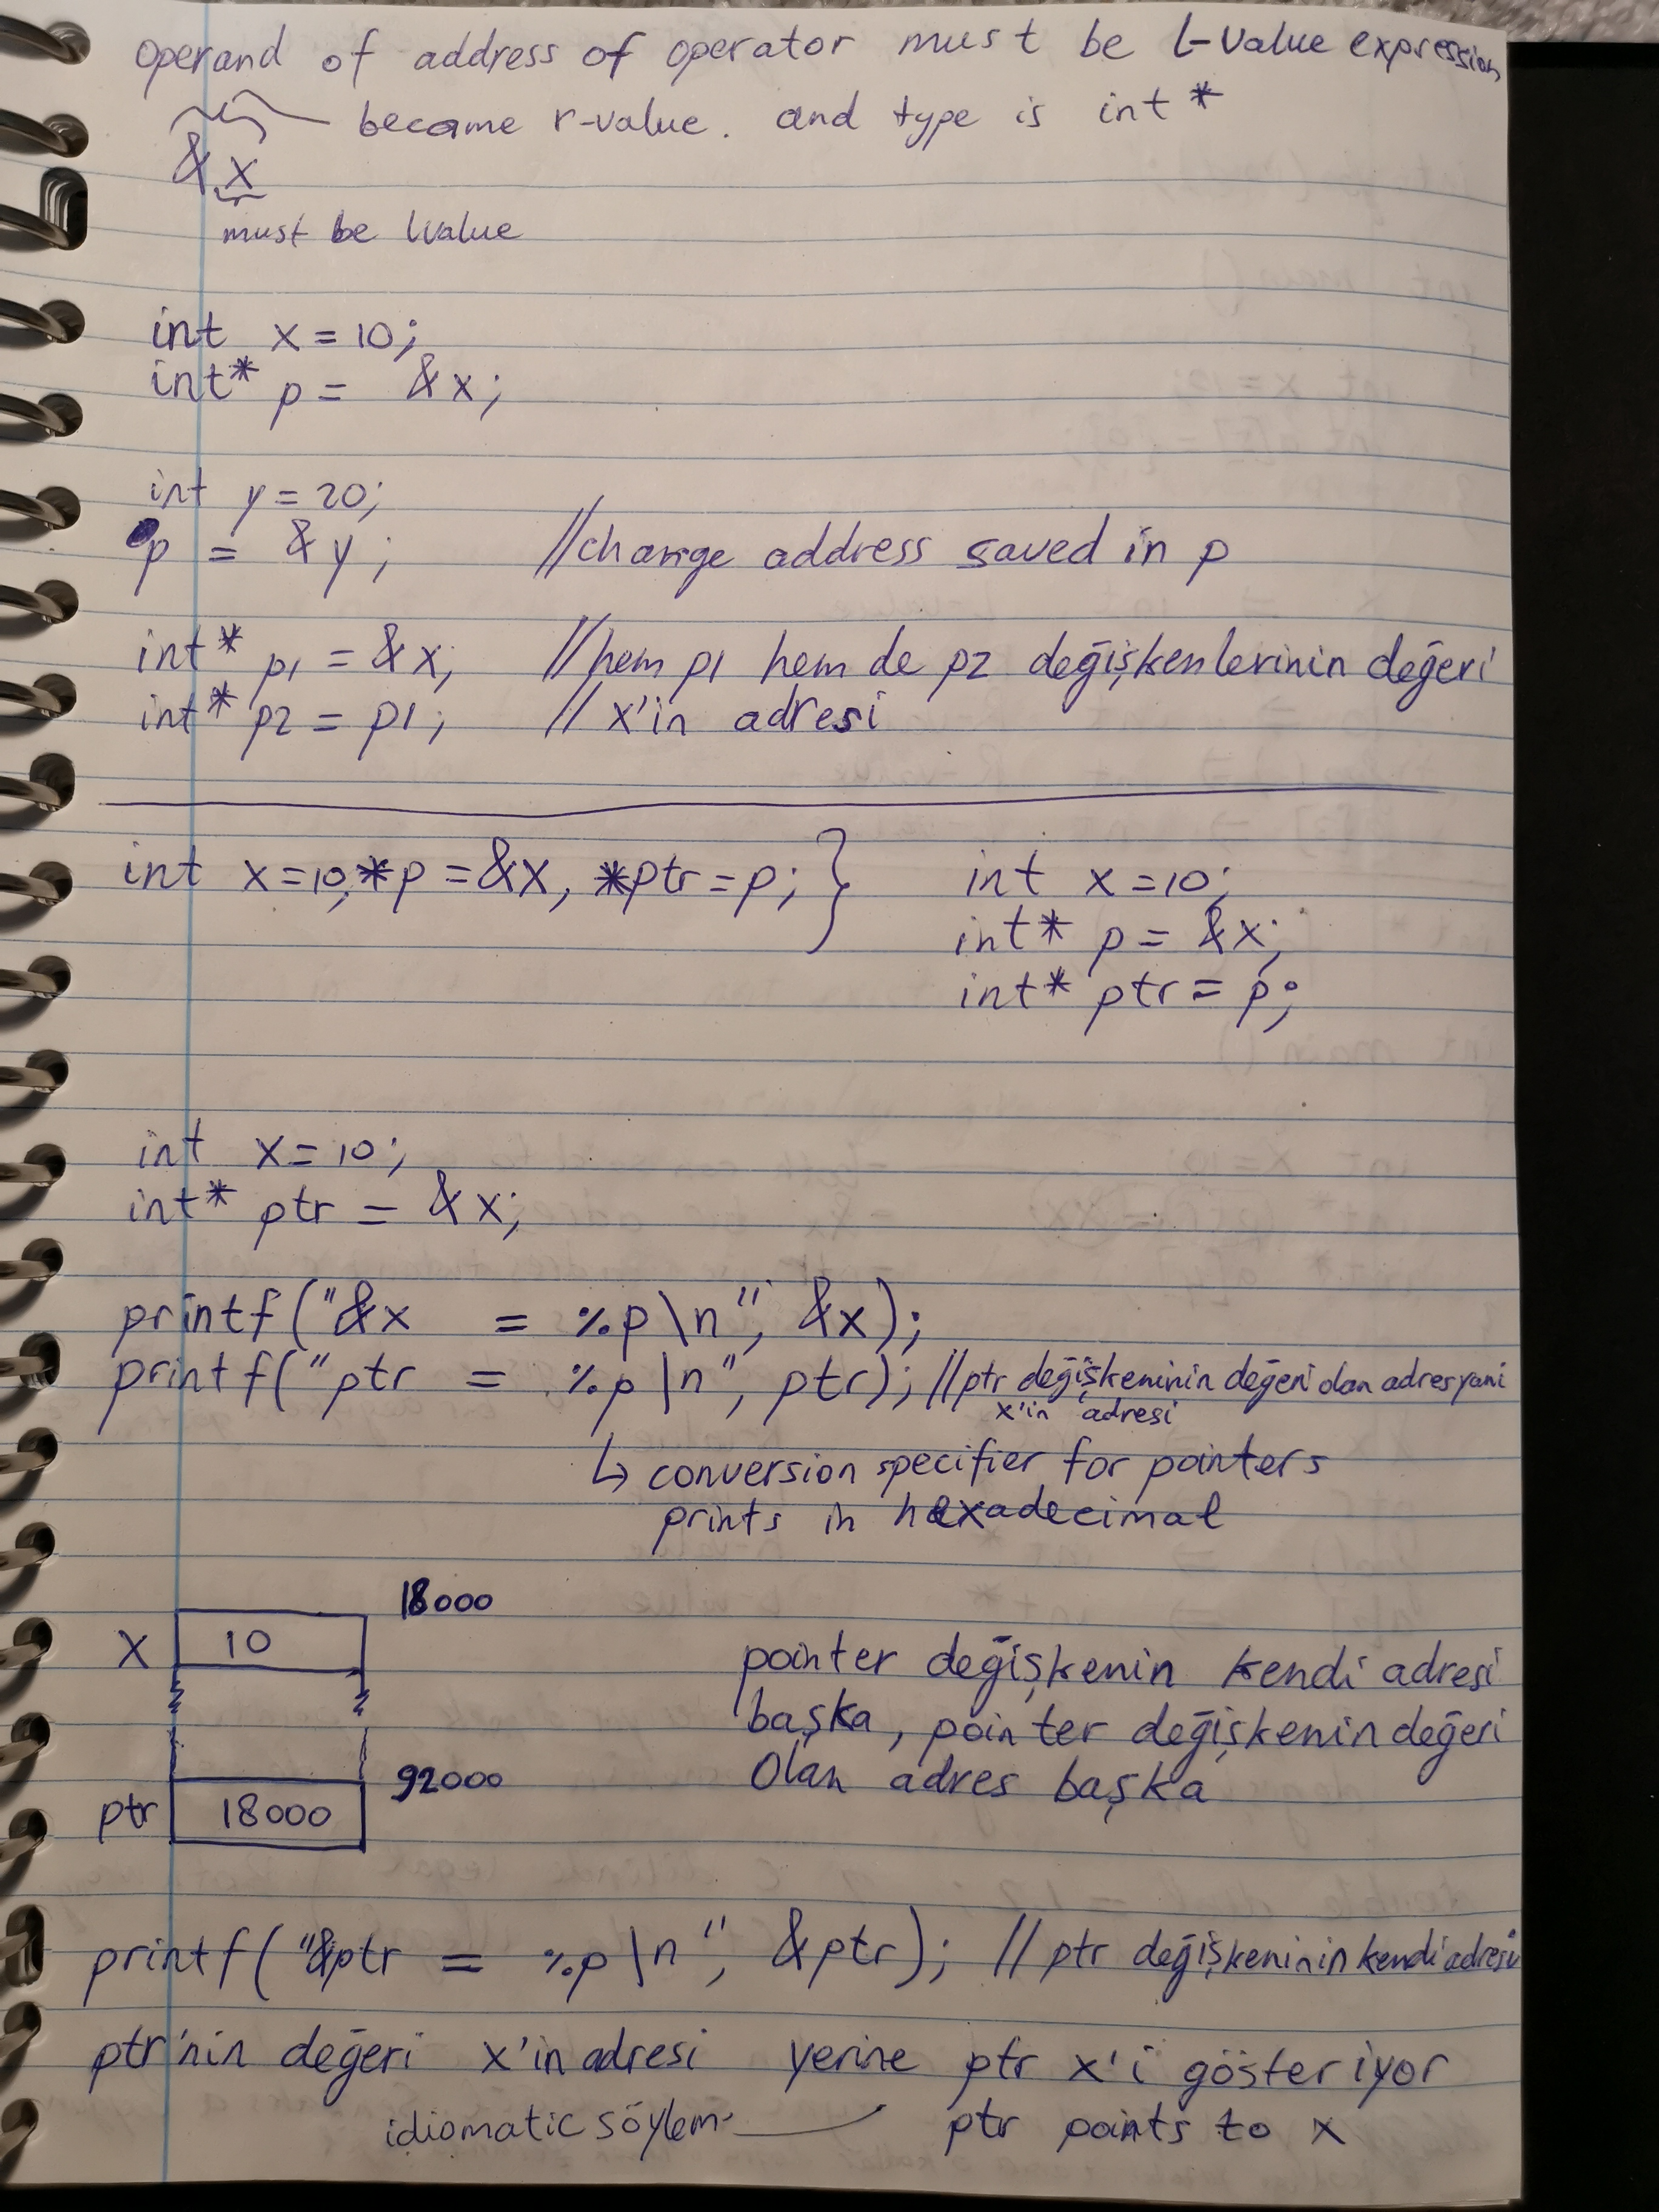 operand of address of operator must be L-value expression
became r-value. and type is int *
&x
must be lvalue
int x = 10;
int* p = &x;
int y = 20;
p = &y; //change address saved in p
int* p1 = &x; //hem p1 hem de p2 değişkenlerinin değeri
int* p2 = p1; // x'in adresi
int x=10, *p = &x, *ptr = p; } int x = 10;
int* p = &x;
int* ptr = p;
int x = 10;
int* ptr = &x;
printf("&x = %p\n", &x);
printf("ptr = %p\n", ptr); //ptr değişkeninin değeri olan adres yani
x'in adresi
↳ conversion specifier for pointers
prints in hexadecimal
18000
x 10
pointer değişkenin kendi adresi
başka, pointer değişkenin değeri
olan adres başka
92000
ptr 18000
printf("&ptr = %p\n", &ptr); // ptr değişkeninin kendi adresi
ptr'nin değeri x'in adresi yerine ptr x'i gösteriyor
idiomatic söylem ptr points to x